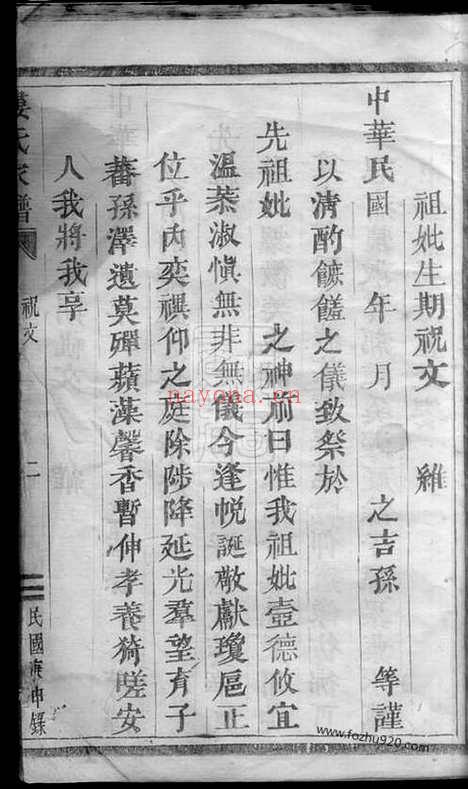 祖妣生期祝文　維
中華民國　年　月　之吉孫　等謹
以清酌饌饈之儀致祭於
先祖妣　之神前曰惟我祖妣壼德攸宜
溫恭淑慎無非無儀今逢帨誕敢獻瓊巵正
位乎內奕禩仰之庭除陟降延光羣望育子
蕃孫澤遺莫殫蘋藻馨香暫伸孝養猗嗟安
人我將我享
婁氏家譜
祝文
二
民國庚申鐫
nayona.cn
www.fozhu920.com